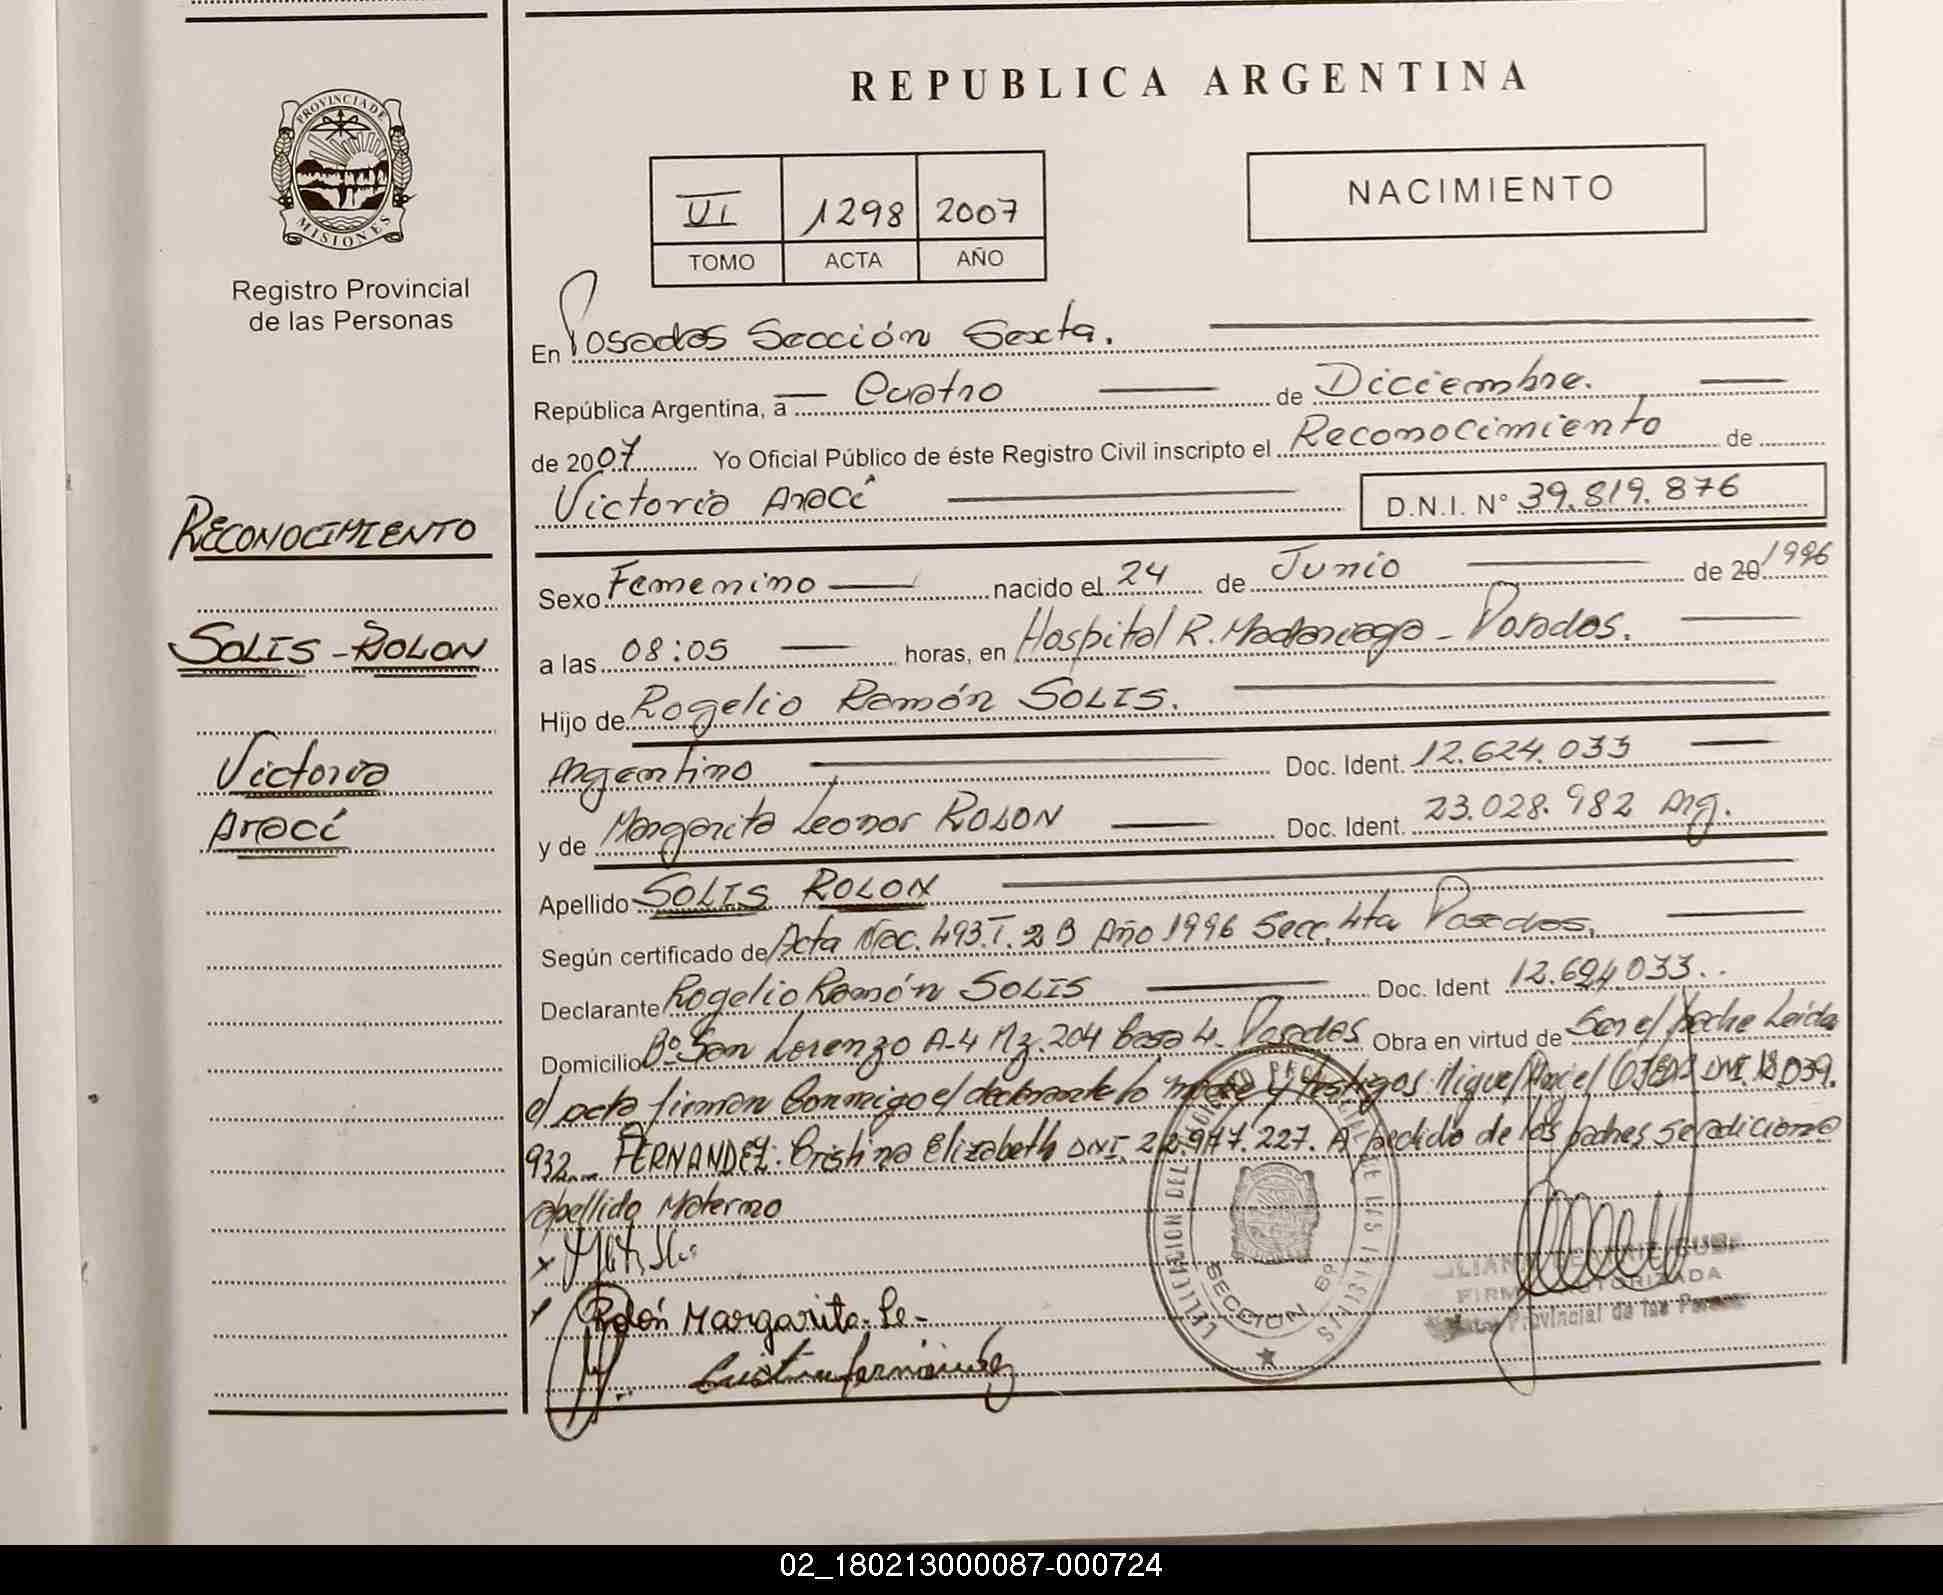 REPUBLICA ARGENTINA
PROVINCIA DE
MISIONES
Registro Provincial
de las Personas
VI 1298 2007
TOMO ACTA AÑO
NACIMIENTO
En Posadas Sección Sexta.
República Argentina, a Cuatro de Diciembre.
de 2007 Yo Oficial Público de éste Registro Civil inscripto el Reconocimiento de
Victoria Arací D.N.I. N° 39.819.876
RECONOCIMIENTO
SOLIS - ROLON
Victoria
Arací
Sexo Femenino nacido el 24 de Junio de 20 1996
a las 08:05 horas, en Hospital R. Madariaga - Posadas.
Hijo de Rogelio Ramón SOLIS.
Argentino Doc. Ident. 12.624.033
y de Margarita Leonor ROLON Doc. Ident. 23.028.982 Arg.
Apellido SOLIS ROLON
Según certificado de Acta Nac. 493. T. 2 B Año 1996 Secc. 4ta Posadas.
Declarante Rogelio Ramón SOLIS Doc. Ident 12.624.033..
Domicilio Bº San Lorenzo A-4 Mz. 204 Casa 4. Posadas Obra en virtud de Ser el padre Leída
el acta firman Conmigo el declarante la madre y testigos Miguel Angel OJEDA DNI. 18.039.
932 FERNANDEZ. Cristina Elizabeth DNI. 22.977.227. A pedido de los padres se adiciona
apellido Materno
Rolón Margarita Le-
SECCION 6ª
FIRMA AUTORIZADA
Provincial de las Personas
02_180213000087-000724